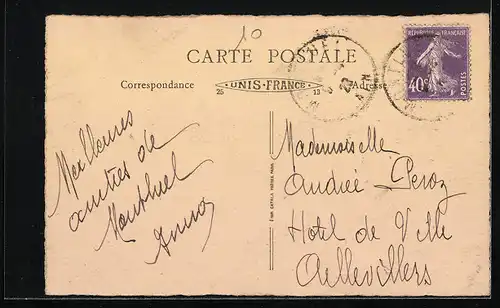 10
CARTE POSTALE
Correspondance
UNIS-FRANCE
25 13
Adresse
RÉPUBLIQUE FRANÇAISE
40c
POSTES
Meilleures
amitiés de
Monthuel
Anna
Mademoiselle
Andrée Peroz
Hôtel de Ville
Aillevillers